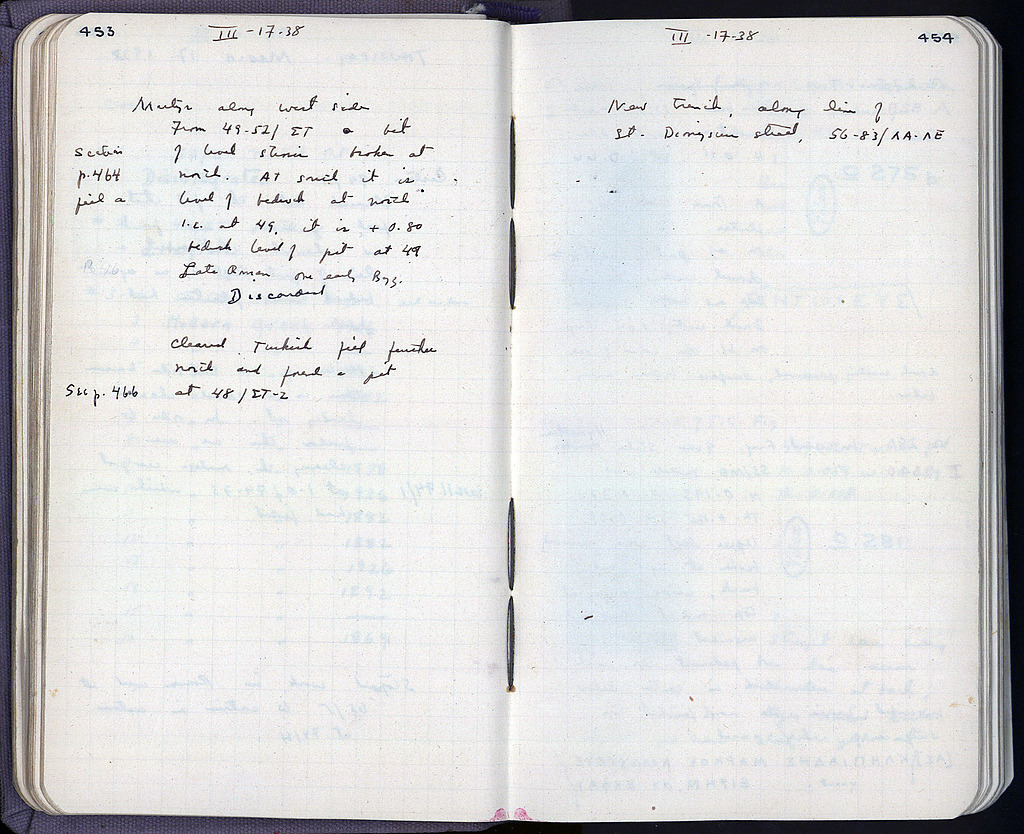 453
III -17-38
Martyr along west side
From 49-52/ΣΤ a bit
of level stereo broken at
north. At south it is
level of bedrock at north
i.e. at 49, it is + 0.80
bedrock level of pit at 49
Late Roman one early Byz.
Discarded
Section
p. 464
Cleared Turkish fill further
north and found a pit
See p. 466 at 48/ΣΤ-2
454
III -17-38
New trench, along line of
St. Dionysiou street, 56-83/ΛΑ-ΛΕ